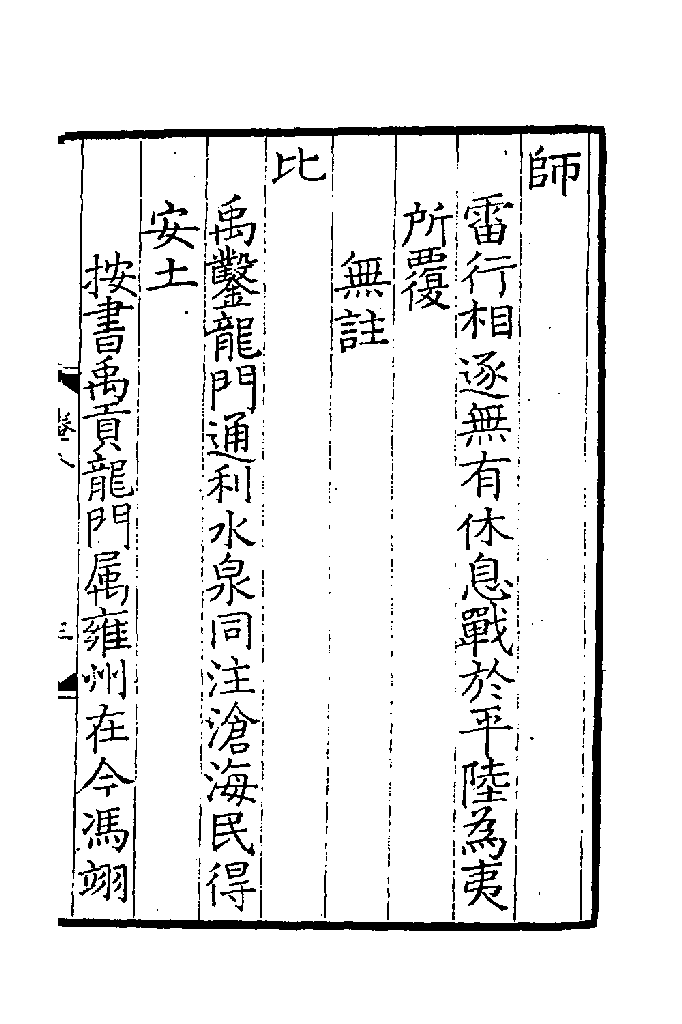 師
雷行相逐無有休息戰於平陸為夷
所覆
無註
比
禹鑿龍門通利水泉同注滄海民得
安土
按書禹貢龍門屬雍州在今馮翊
卷八
三